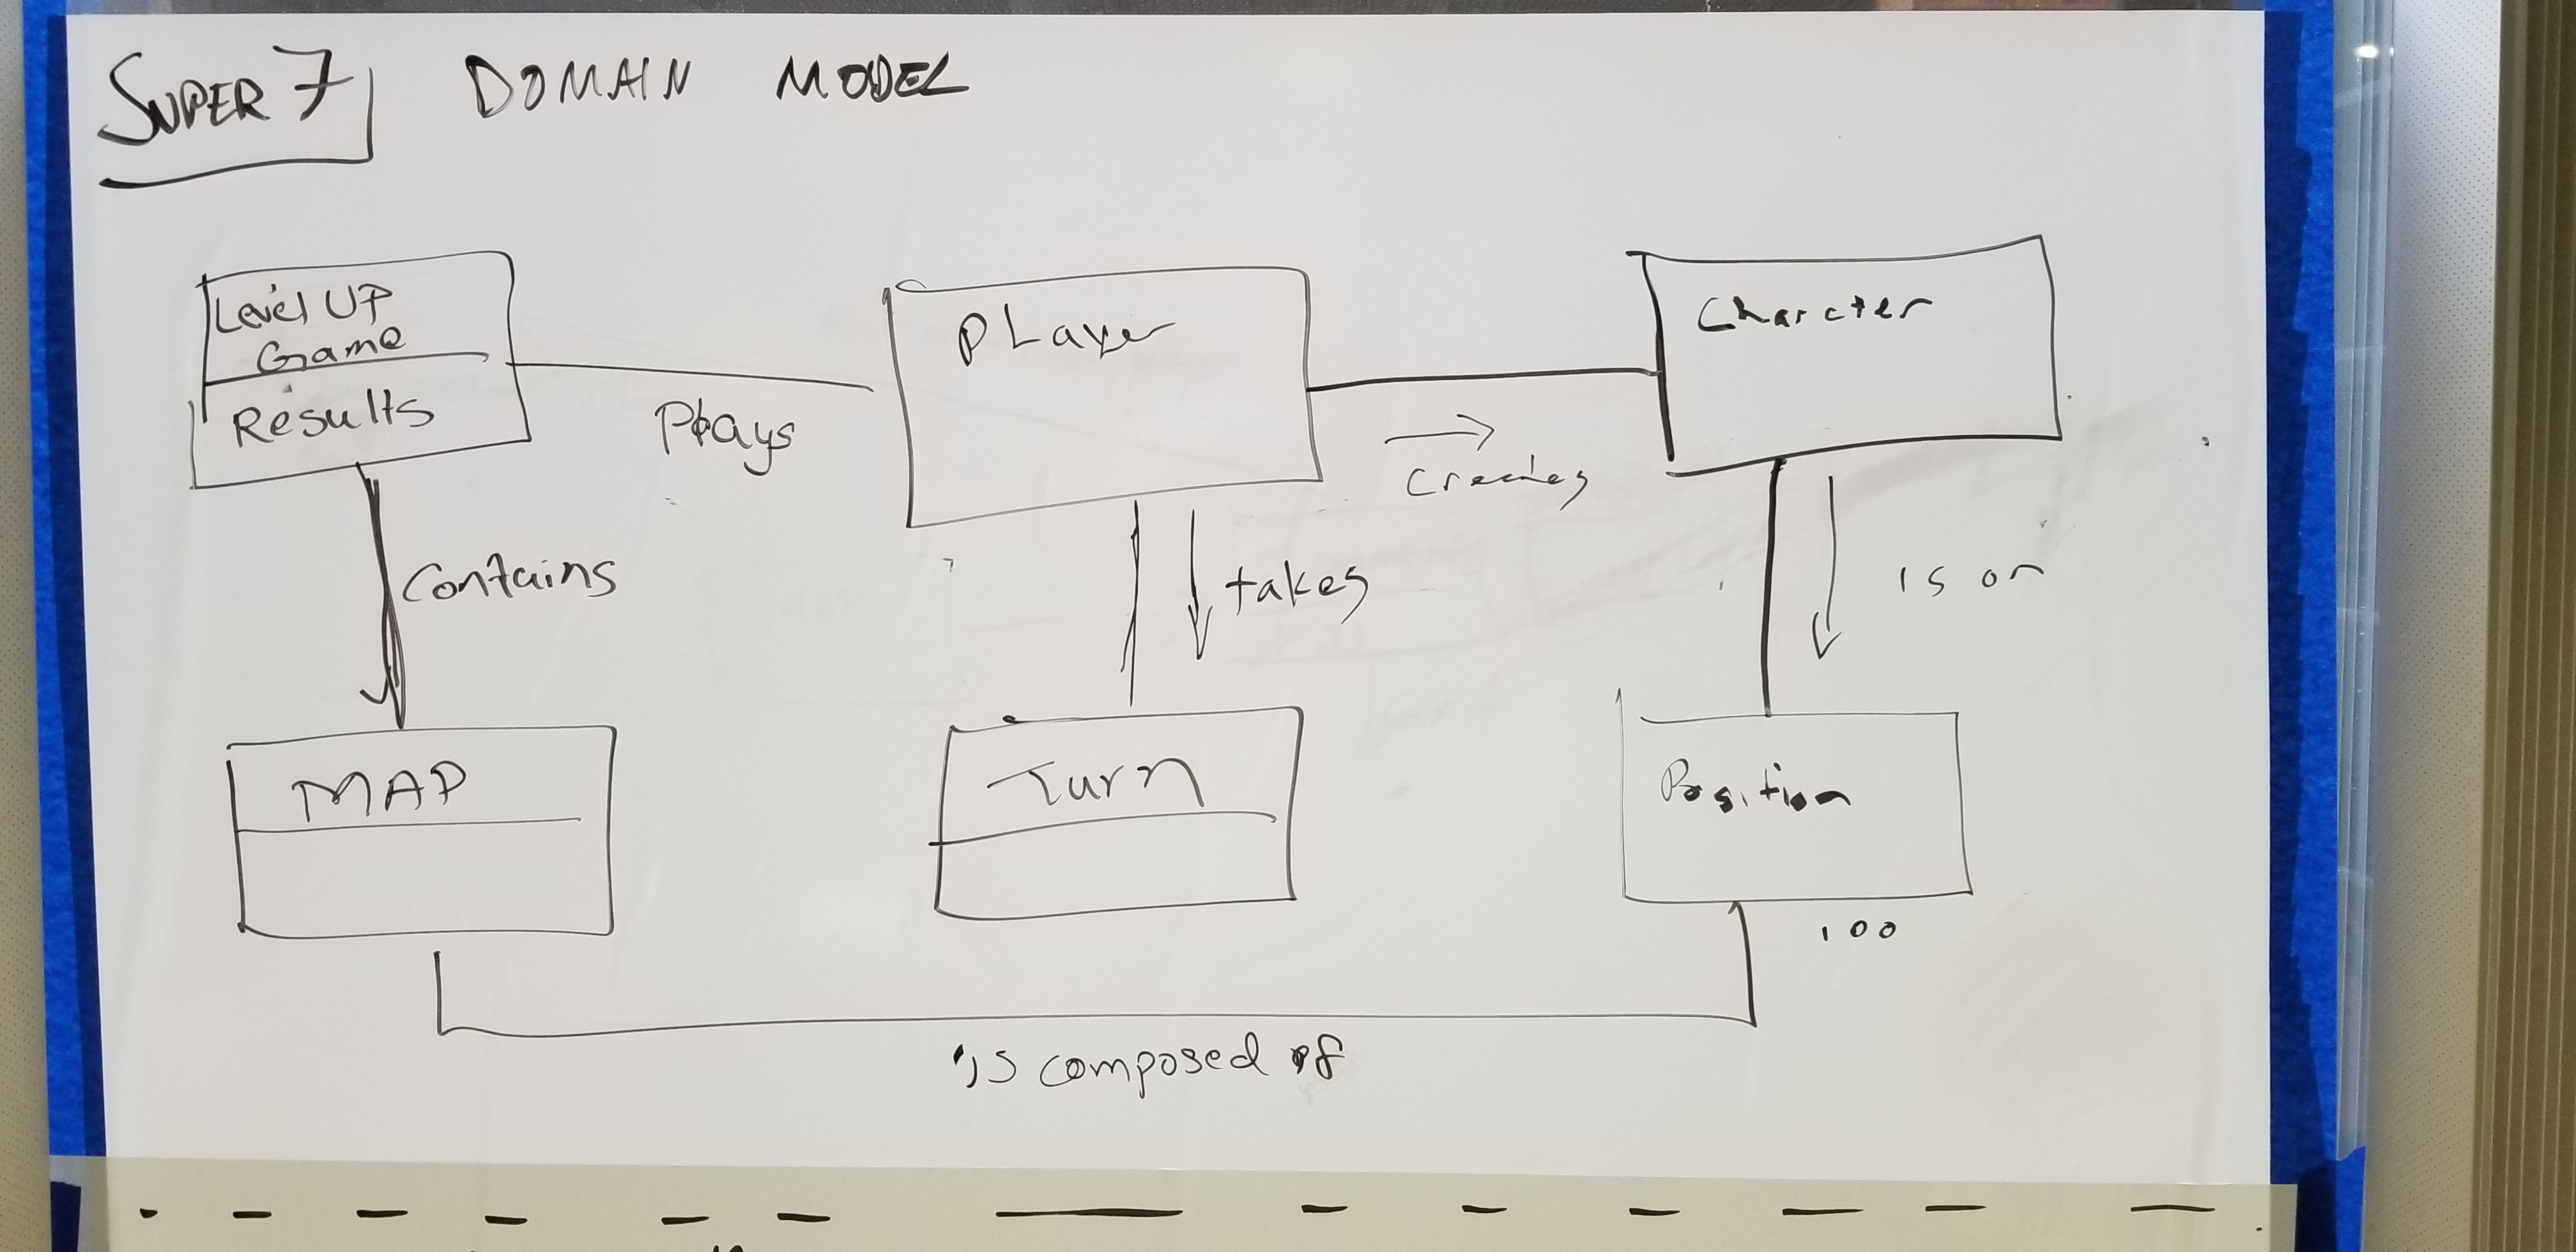 SUPER 7 DOMAIN MODEL
Level UP
Game
Results
Plays
PLayer
creates
Charcter
Contains
takes
is on
MAP
Turn
Position
100
is composed of